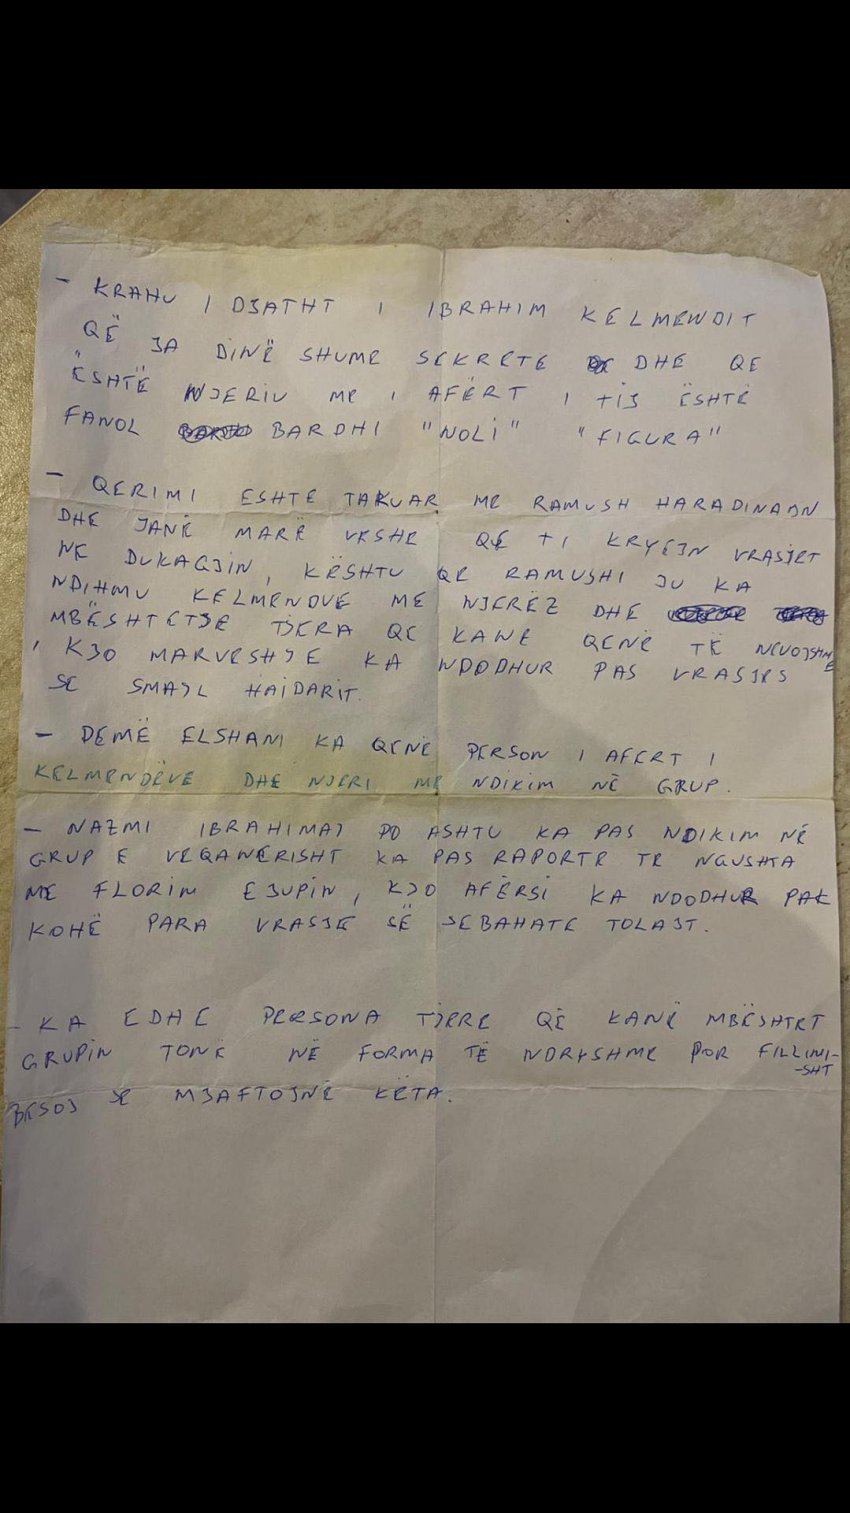 - KRAHU I DJATHT I IBRAHIM KELMENDIT
QË JA DINË SHUME SEKRETE DHE QE
ËSHTË NJERIU ME I AFËRT I TIJ ËSHTË
FANOL BARDHI "NOLI" "FIGURA"
- QERIMI ESHTE TAKUAR ME RAMUSH HARADINAJN
DHE JANË MARË VESHE QË TI KRYEJN VRASJET
NE DUKAGJIN, KËSHTU QE RAMUSHI JU KA
NDIHMU KELMENDVE ME NJERËZ DHE
MBËSHTETJE TJERA QE KANE QENË TË NEVOJSHME
, KJO MARVESHJE KA NDODHUR PAS VRASJES
SE SMAJL HAIDARIT.
- DEMË ELSHANI KA QENË PERSON I AFERT I
KELMENDËVE DHE NJERI ME NDIKIM NË GRUP.
- NAZMI IBRAHIMAJ PO ASHTU KA PAS NDIKIM NË
GRUP E VEQANËRISHT KA PAS RAPORTE TE NGUSHTA
ME FLORIM EJUPIN, KJO AFËRSI KA NDODHUR PAK
KOHË PARA VRASJE SË SEBAHATE TOLAJT.
- KA EDHE PERSONA TJERE QË KANË MBËSHTET
GRUPIN TONË NË FORMA TË NDRYSHME POR FILLIMI-
-SHT
BESOJ SE MJAFTOJNË KËTA.